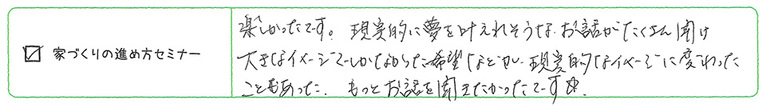 ☑ 家づくりの進め方セミナー
楽しかったです。現実的に夢を叶えれそうなお話がたくさん聞け
大きなイメージでしかなかった希望などが、現実的なイメージに変わった
こともあった。もっとお話を聞きたかったです☆